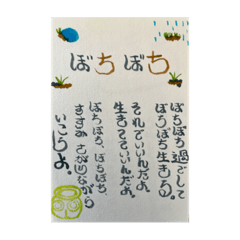 ぼちぼち
ぼちぼち過ごして
ぼちぼち生きる。
それでいいんだよ。
生きてていいんだよ。
ぼちぼち、ぼちぼち、
すすみ さがしながら
いこうよ。